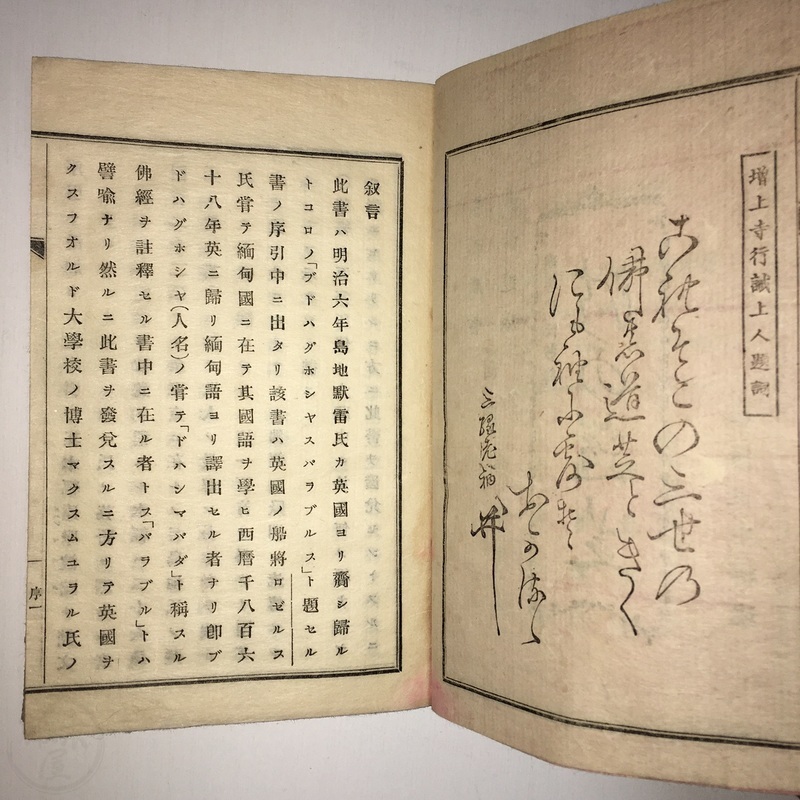 增上寺行誡上人題詞
の三世の
佛 道芝ときく
にも袖に露そ
叙言
此書ハ明治六年島地默雷氏カ英國ヨリ齎シ歸ル
トコロノ「ブドハグホシヤスパラブルス」ト題セル
書ノ序引中ニ出タリ該書ハ英國ノ船將ロゼルス
氏甞テ緬甸國ニ在テ其國語ヲ學ヒ西曆千八百六
十八年英ニ歸リ緬甸語ヨリ譯出セル者ナリ卽ブ
ドハグホシヤ(人名)ノ甞テ「ドハンマパダ」ト稱スル
佛經ヲ註釋セル書中ニ在ル者トス「パラブル」トハ
譬喩ナリ然ルニ此書ヲ發兌スルニ方リテ英國ヲ
クスフオルド大學校ノ博士マクスムユラル氏ノ
序一